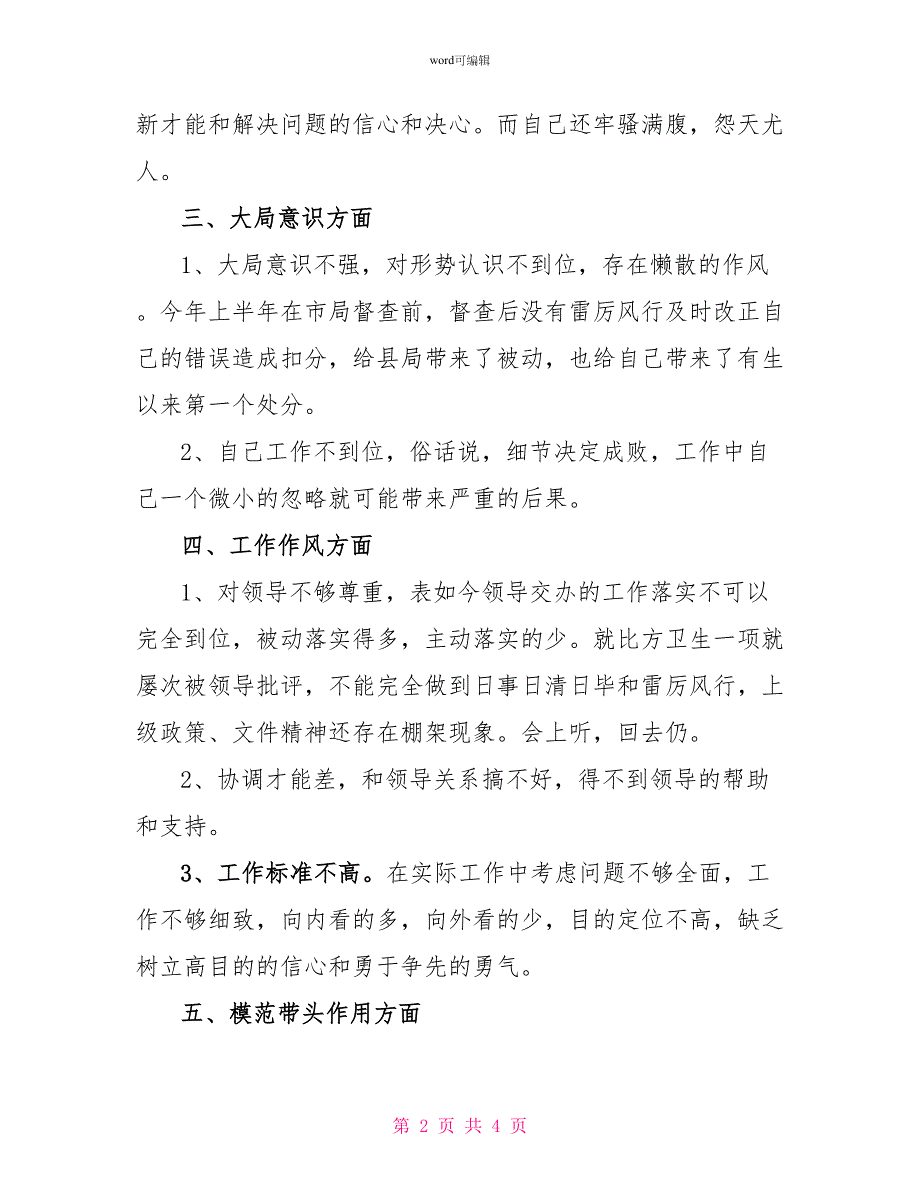 word可编辑
新才能和解决问题的信心和决心。而自己还牢骚满腹，怨天尤
人。
三、大局意识方面
1、大局意识不强，对形势认识不到位，存在懒散的作风
。今年上半年在市局督查前，督查后没有雷厉风行及时改正自
己的错误造成扣分，给县局带来了被动，也给自己带来了有生
以来第一个处分。
2、自己工作不到位，俗话说，细节决定成败，工作中自
己一个微小的忽略就可能带来严重的后果。
四、工作作风方面
1、对领导不够尊重，表如今领导交办的工作落实不可以
完全到位，被动落实得多，主动落实的少。就比方卫生一项就
屡次被领导批评，不能完全做到日事日清日毕和雷厉风行，上
级政策、文件精神还存在棚架现象。会上听，回去仍。
2、协调才能差，和领导关系搞不好，得不到领导的帮助
和支持。
3、工作标准不高。在实际工作中考虑问题不够全面，工
作不够细致，向内看的多，向外看的少，目的定位不高，缺乏
树立高目的的信心和勇于争先的勇气。
五、模范带头作用方面
第 2 页 共 4 页